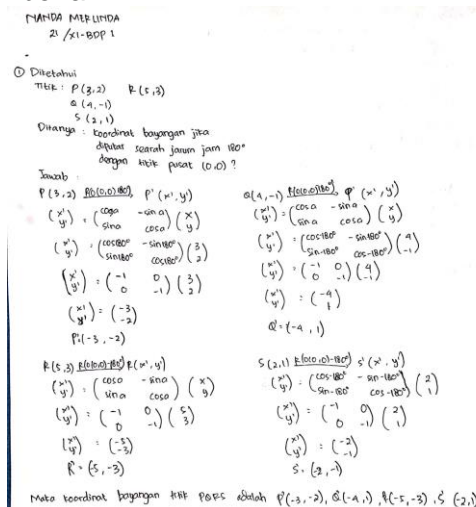 NANDA MERLINDA
21 /XI-BDP 1
① Diketahui
Titik : P(3,2) R(5,3)
Q(4,-1)
S(2,1)
Ditanya : koordinat bayangan jika
diputar searah jarum jam 180°
dengan titik pusat (0,0) ?
Jawab
P(3,2) P'(x',y')
(x' y') = (cosa -sina sina cosa) (x y)
(x' y') = (cos180° -sin180° sin180° cos180°) (3 2)
(x' y') = (-1 0 0 -1) (3 2)
(x' y') = (-3 -2)
P'=(-3,-2)
Q(4,-1) Q'(x',y')
(x' y') = (cosa -sina sina cosa) (x y)
(x' y') = (cos-180° -sin-180° sin-180° cos-180°) (4 -1)
(x' y') = (-1 0 0 -1) (4 -1)
(x' y') = (-4 1)
Q'=(-4,1)
R(5,3) R(x',y')
(x' y') = (cosa -sina sina cosa) (x y)
(x' y') = (-1 0 0 -1) (5 3)
(x' y') = (-5 -3)
R'=(-5,-3)
S(2,1) S'(x',y')
(x' y') = (cos-180° -sin-180° sin-180° cos-180°) (2 1)
(x' y') = (-1 0 0 -1) (2 1)
(x' y') = (-2 -1)
S=(-2,-1)
Maka koordinat bayangan titik PQRS adalah P'(-3,-2), Q'(-4,1), R'(-5,-3), S'(-2,1)